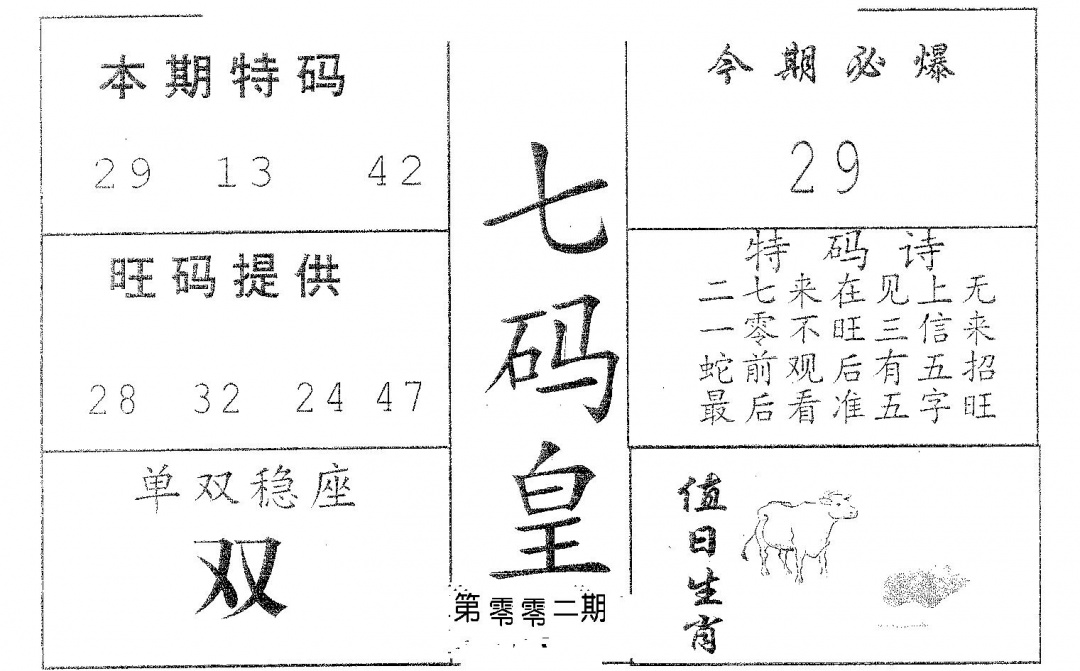 本期特码
29 13 42
旺码提供
28 32 24 47
单双稳座
双
七码皇
第零零二期
今期必爆
29
特码诗
二七来在见上无
一零不旺三信来
蛇前观后有五招
最后看准五字旺
值日生肖